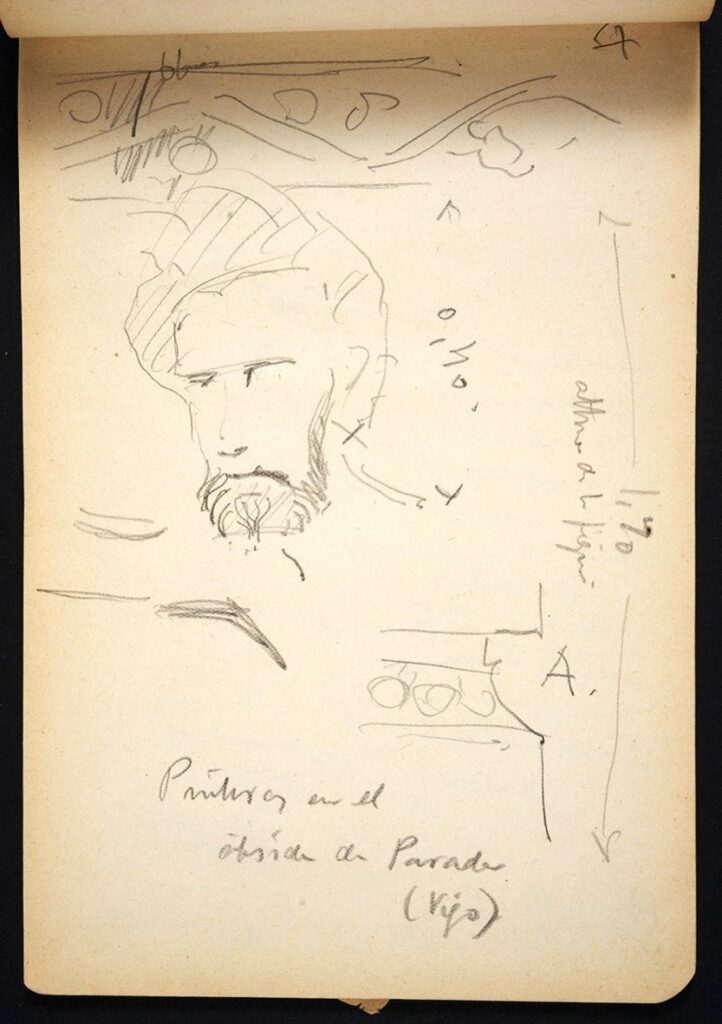 57
0,40.
altura de la figura
1,70
A.
Pinturas en el
ábside de Parada
(Vigo)